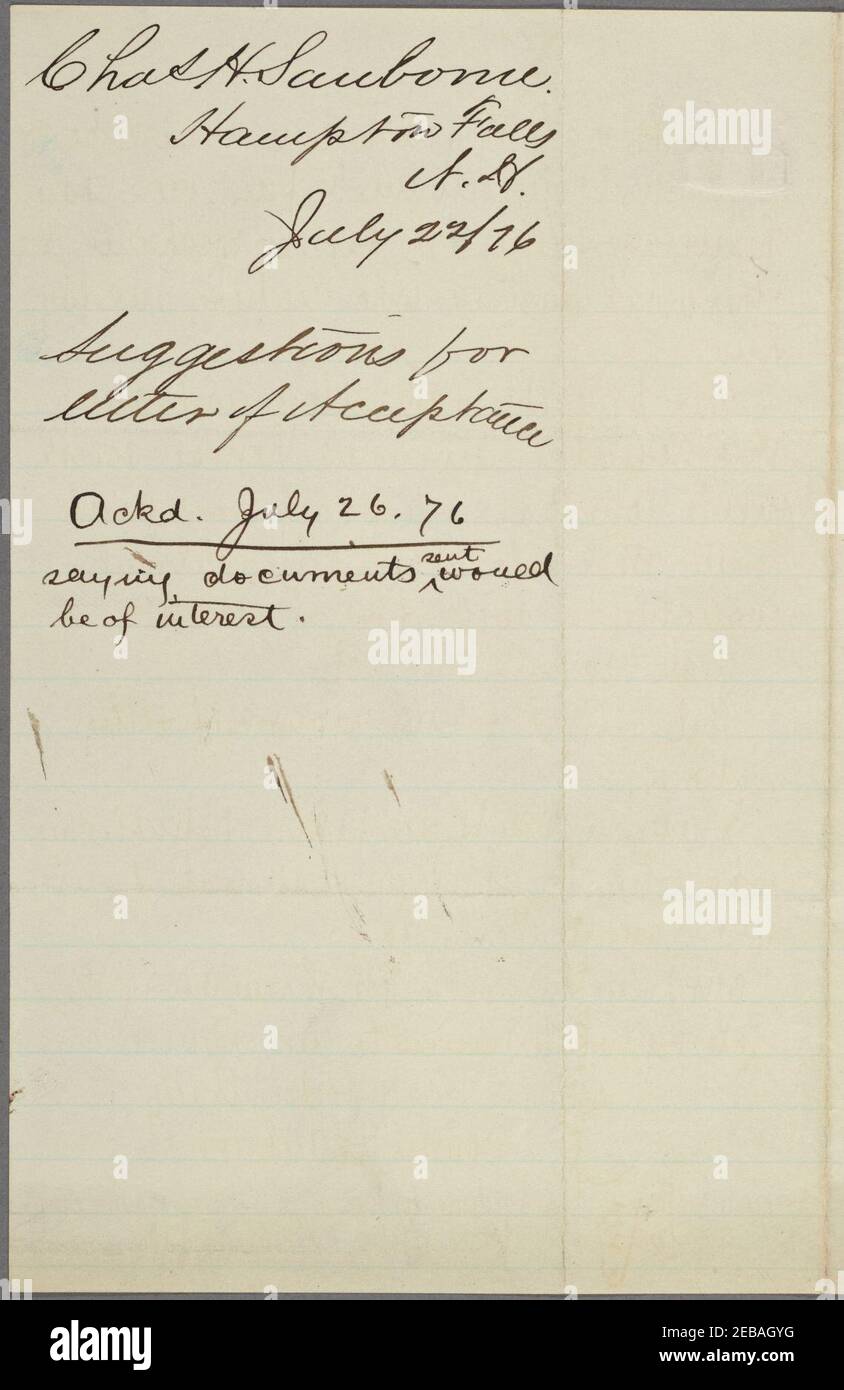 Chas H. Sanborne.
Hampton Falls
N. H.
July 22/76
Suggestions for
letter of Acceptance
Ackd. July 26. 76
saying documents sent would
be of interest.
alamy
Image ID: 2EBAGYG
www.alamy.com